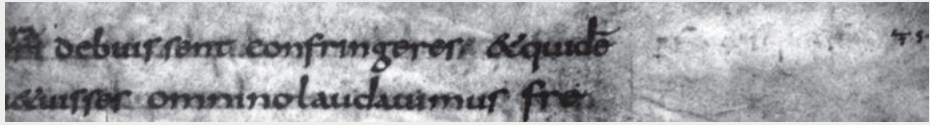 debuissent confringeres, &quidē
&uisses omninolaudauimus fre